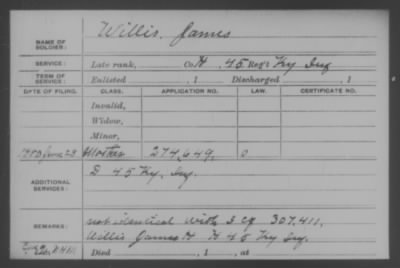 Willis, James
NAME OF SOLDIER:
SERVICE: Late rank, Co. H, 45 Reg't Ky Inf
TERM OF SERVICE: Enlisted , 1 Discharged , 1
DATE OF FILING. CLASS. APPLICATION NO. LAW. CERTIFICATE NO.
Invalid,
Widow,
Minor,
1880 June 23 Mother 274,649,
ADDITIONAL SERVICES: D 45 Ky. Inf.
REMARKS: not identical with I cf 307,411,
Willis James H H 45 Ky Inf.
Died , 1 , at